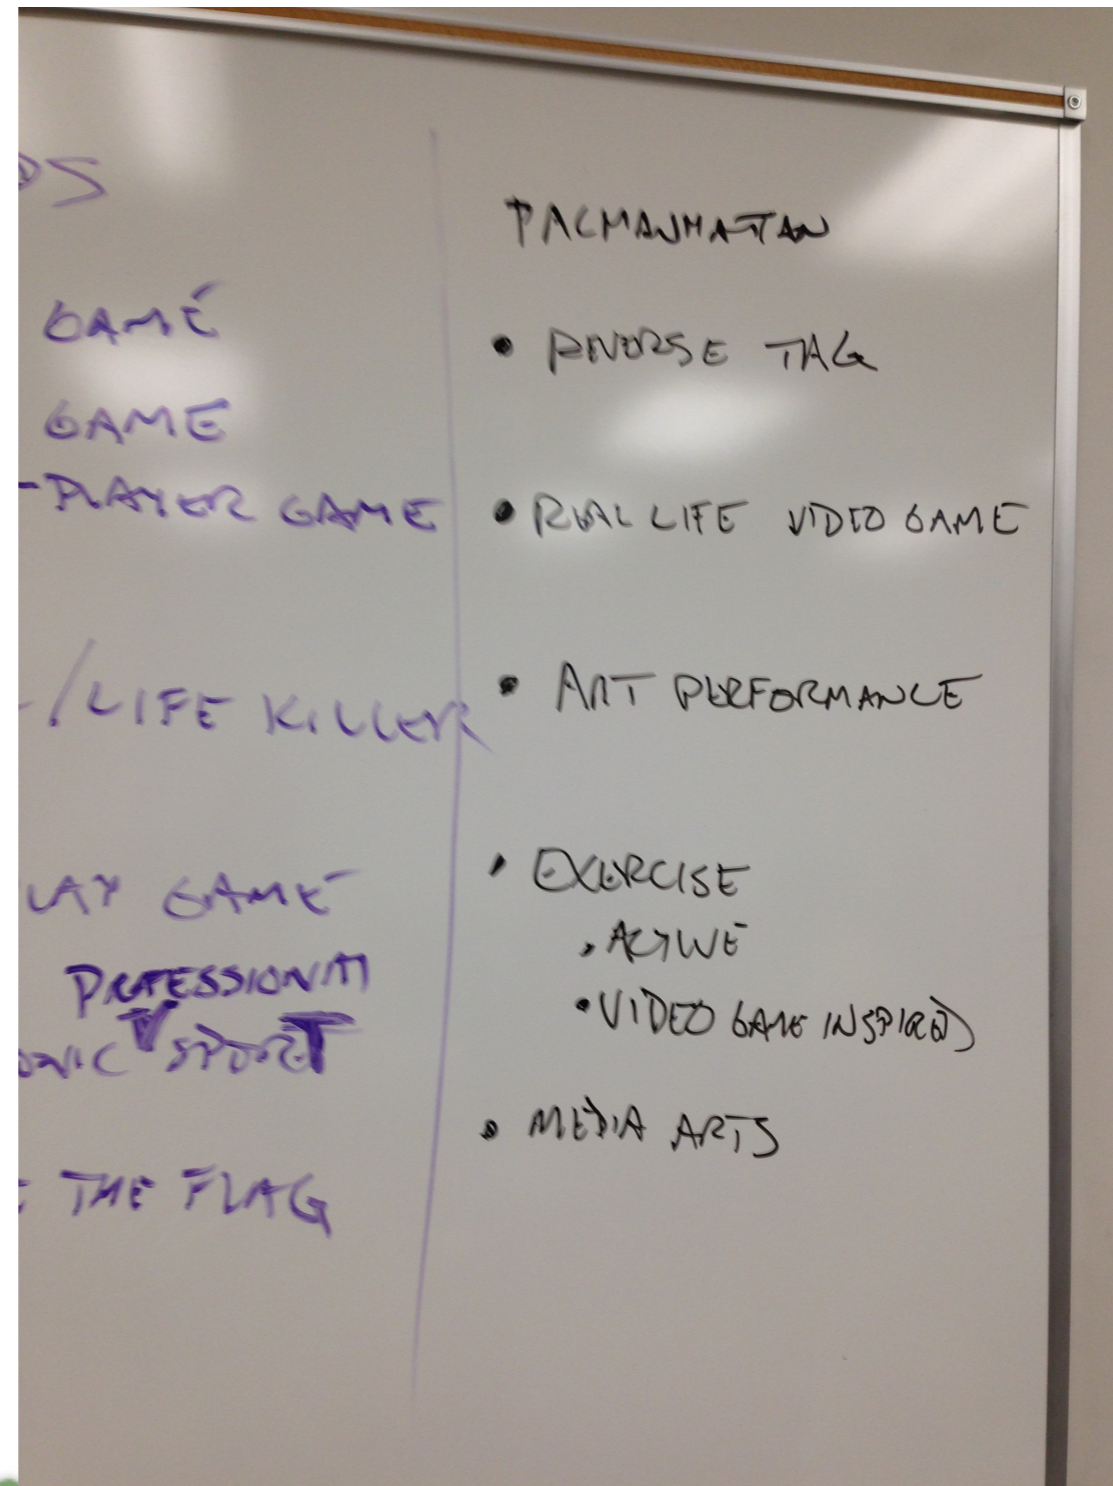 DS
GAME
GAME
-PLAYER GAME
-/LIFE KILLER
LAY GAME
PROFESSIONAL
ONIC SPORT
E THE FLAG
PACMANHATTAN
• REVERSE TAG
• REAL LIFE VIDEO GAME
• ART PERFORMANCE
• EXERCISE
• ACTIVE
• VIDEO GAME INSPIRED
• MEDIA ARTS